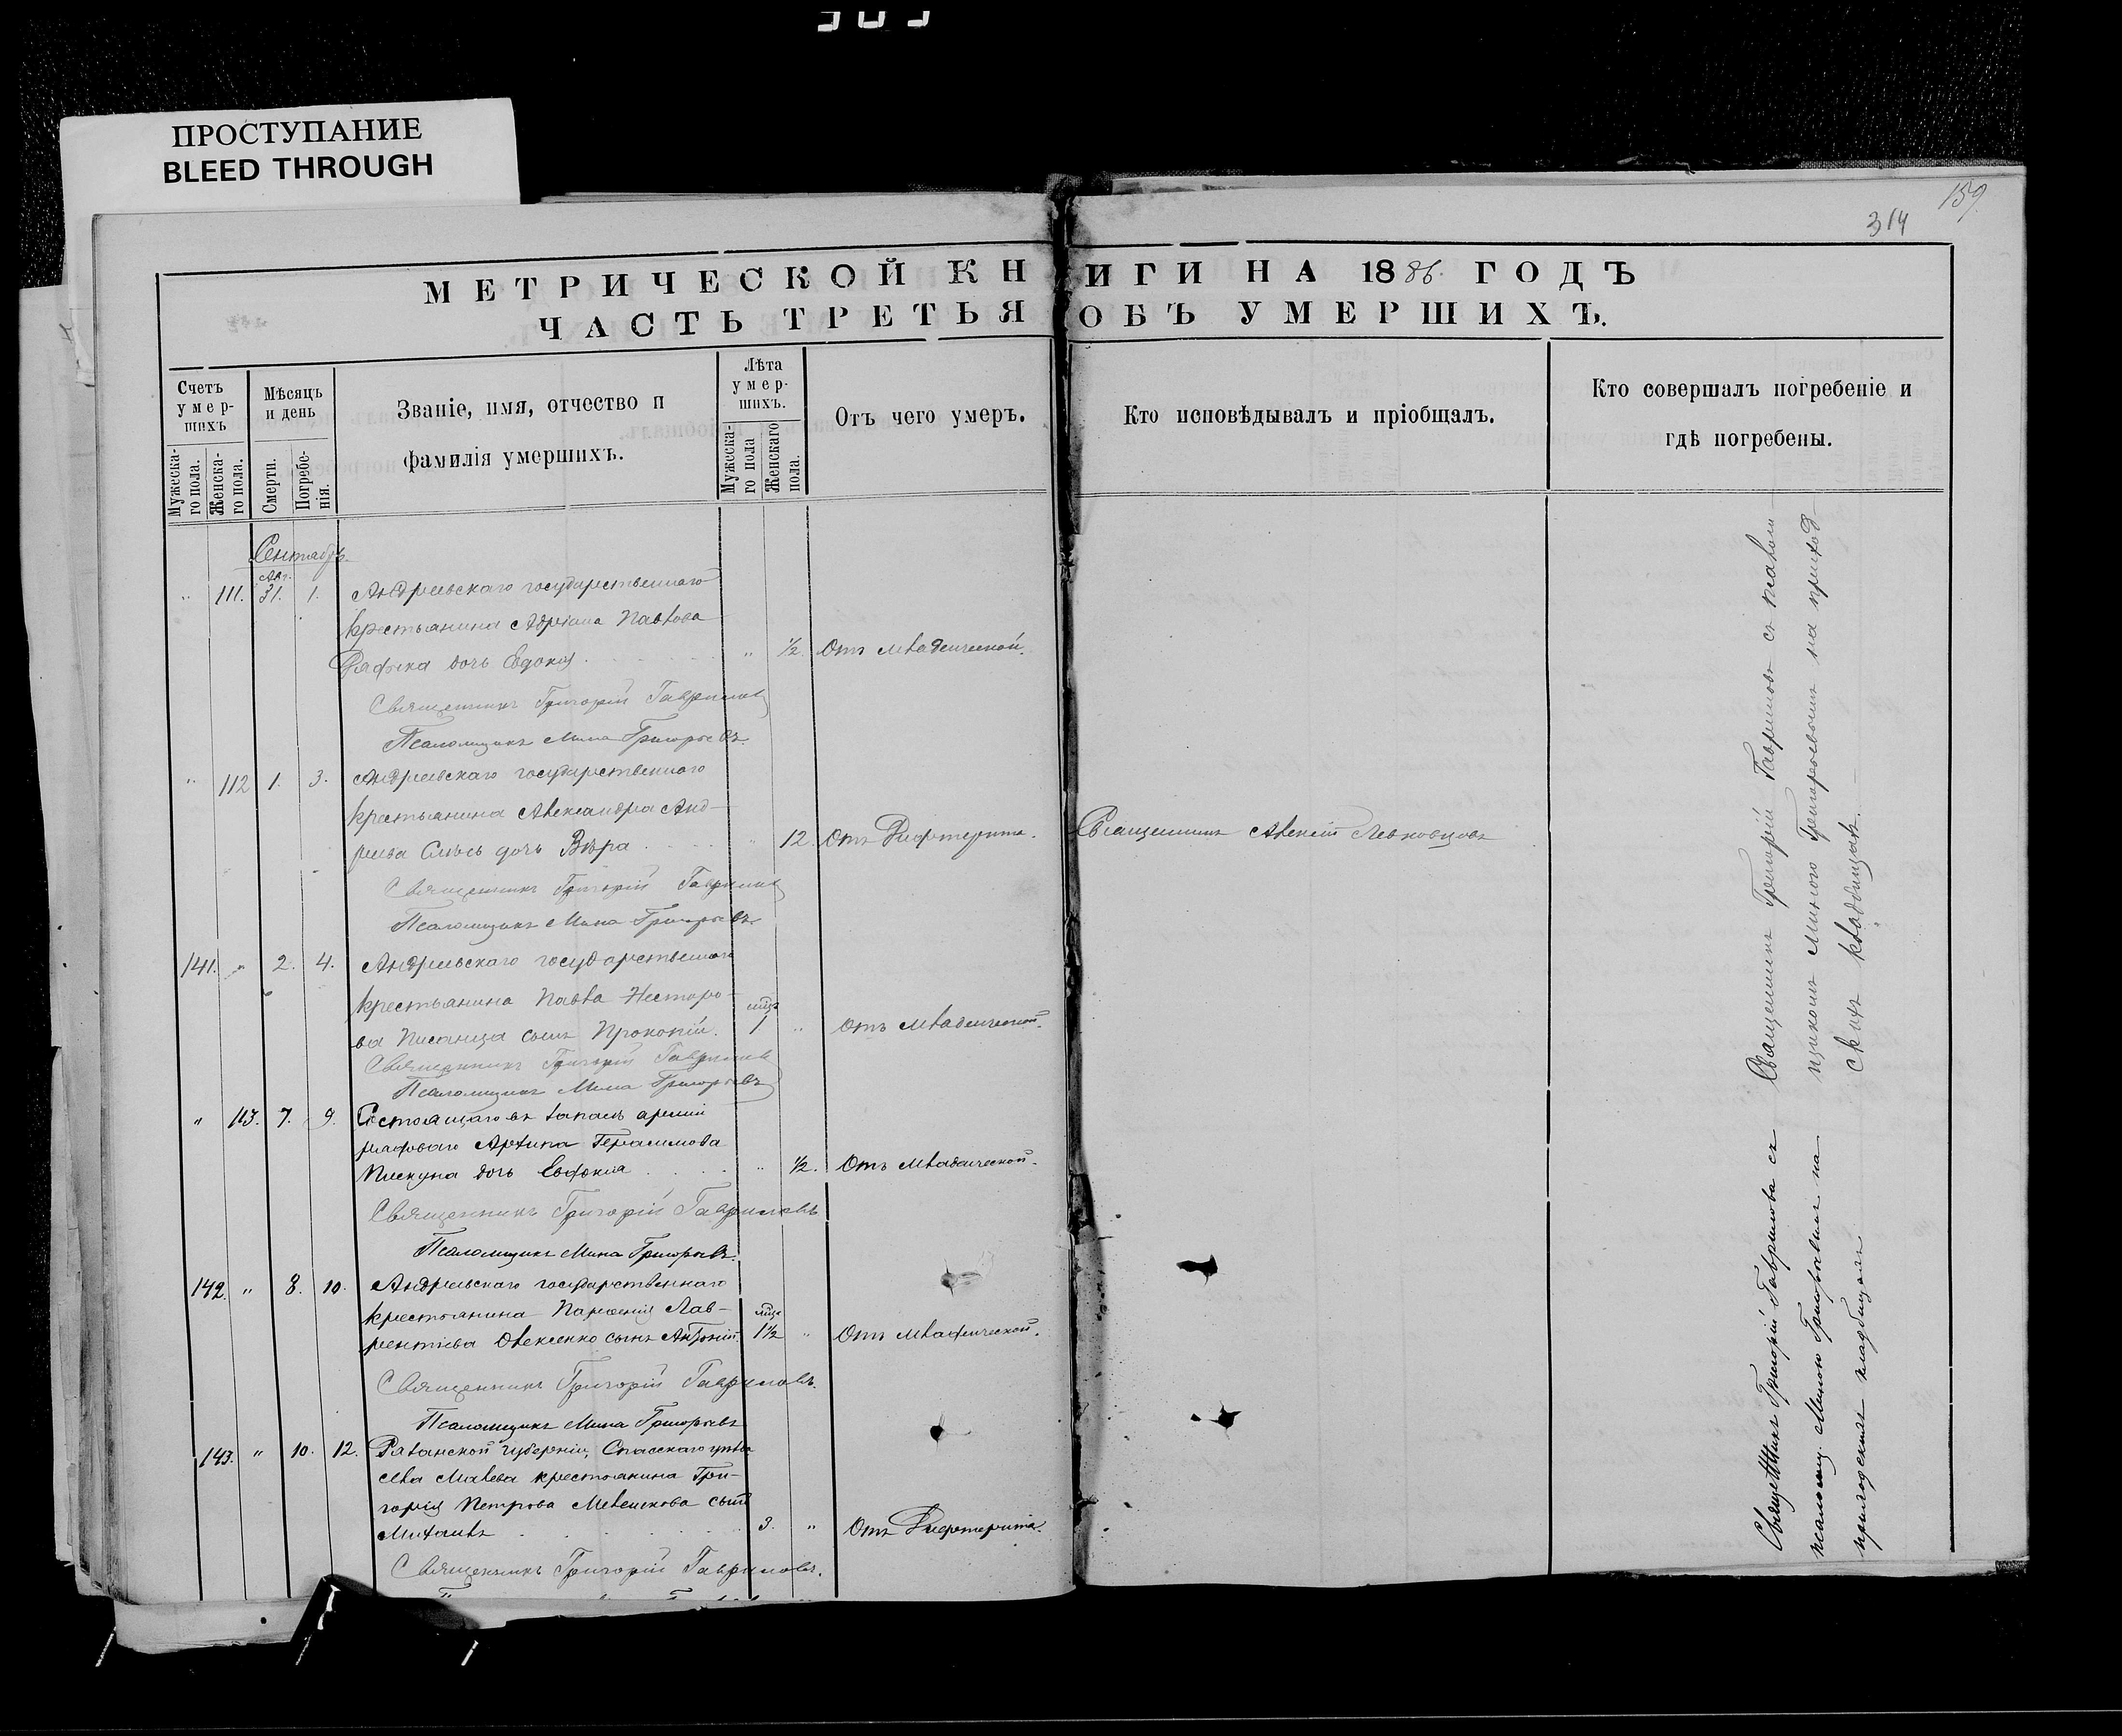 ПРОСТУПАНИЕ
BLEED THROUGH
159
314
МЕТРИЧЕСКОЙ КНИГИ НА 1886. ГОДЪ
ЧАСТЬ ТРЕТЬЯ ОБЪ УМЕРШИХЪ.
Счетъ умер-шихъ
Мужеска-го пола.
Женска-го пола.
Мѣсяцъ и день
Смерти.
Погребе-нія.
Званіе, имя, отчество и
фамилія умершихъ.
Лѣта умер-шихъ.
Мужеска-го пола
Женскаго пола.
Отъ чего умеръ.
Кто исповѣдывалъ и пріобщалъ.
Кто совершалъ погребеніе и
гдѣ погребены.
Сентябрь
Авг.
" 111. 31. 1. Андреевскаго государственнаго
крестьянина Адріана Павлова
дочь Евдокія " ½ Отъ младенческой.
Священникъ Григорій Гавриловъ
Псаломщикъ Мина Григорьевъ.
" 112 1. 3. Андреевскаго государственнаго
крестьянина Александра Анд-
реева дочь Вѣра " 12. Отъ Дифтерита. Священникъ Алексій
Священникъ Григорій Гавриловъ
Псаломщикъ Мина Григорьевъ.
141. " 2. 4. Андреевскаго государственнаго
крестьянина Павла Несторо-
ва Писанца сынъ Прокопій. мца 1 " Отъ младенческой.
Священникъ Григорій Гавриловъ
Псаломщикъ Мина Григорьевъ
" 113. 7. 9. Состоящаго въ запасѣ арміи
рядоваго Архипа Герасимова
Пискуна дочь Евфимія " ½. Отъ младенческой.
Священникъ Григорій Гавриловъ
Псаломщикъ Мина Григорьевъ.
142. " 8. 10. Андреевскаго государственнаго
крестьянина Парфенія Лав-
рентіева Овексенко сынъ Антоній. мца 1½ " Отъ младенческой.
Священникъ Григорій Гавриловъ.
Псаломщикъ Мина Григорьевъ
143. " 10. 12. Рязанской губерніи, Спасскаго уѣзда
села крестьянина Гри-
горія Петрова сынъ
Михаилъ 3. " Отъ Дифтерита.
Священникъ Григорій Гавриловъ.
Священникъ Григорій Гавриловъ съ псалом-
щикомъ Миною Григорьевымъ на приход-
скихъ кладбищахъ.
Священникъ Григорій Гаврилова съ
псаломщ. Миною Григорьевымъ на
приходскихъ кладбищахъ